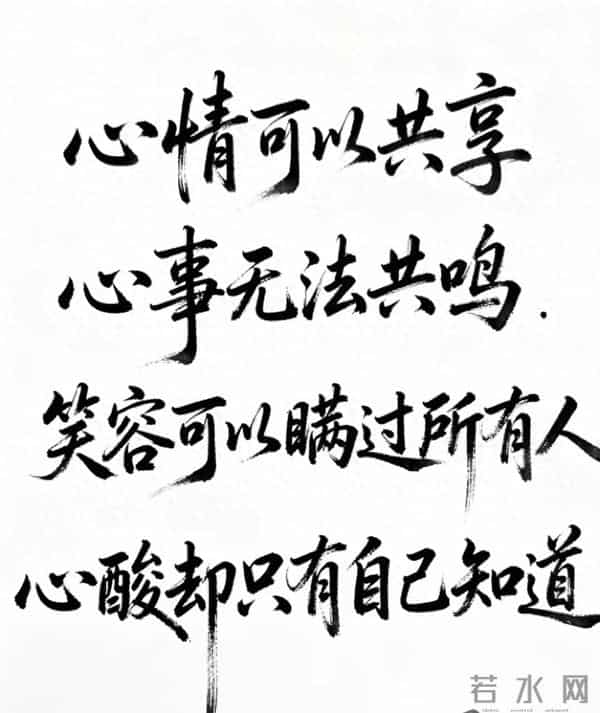 心情可以共享
心事无法共鸣.
笑容可以瞒过所有人
心酸却只有自己知道
若水网